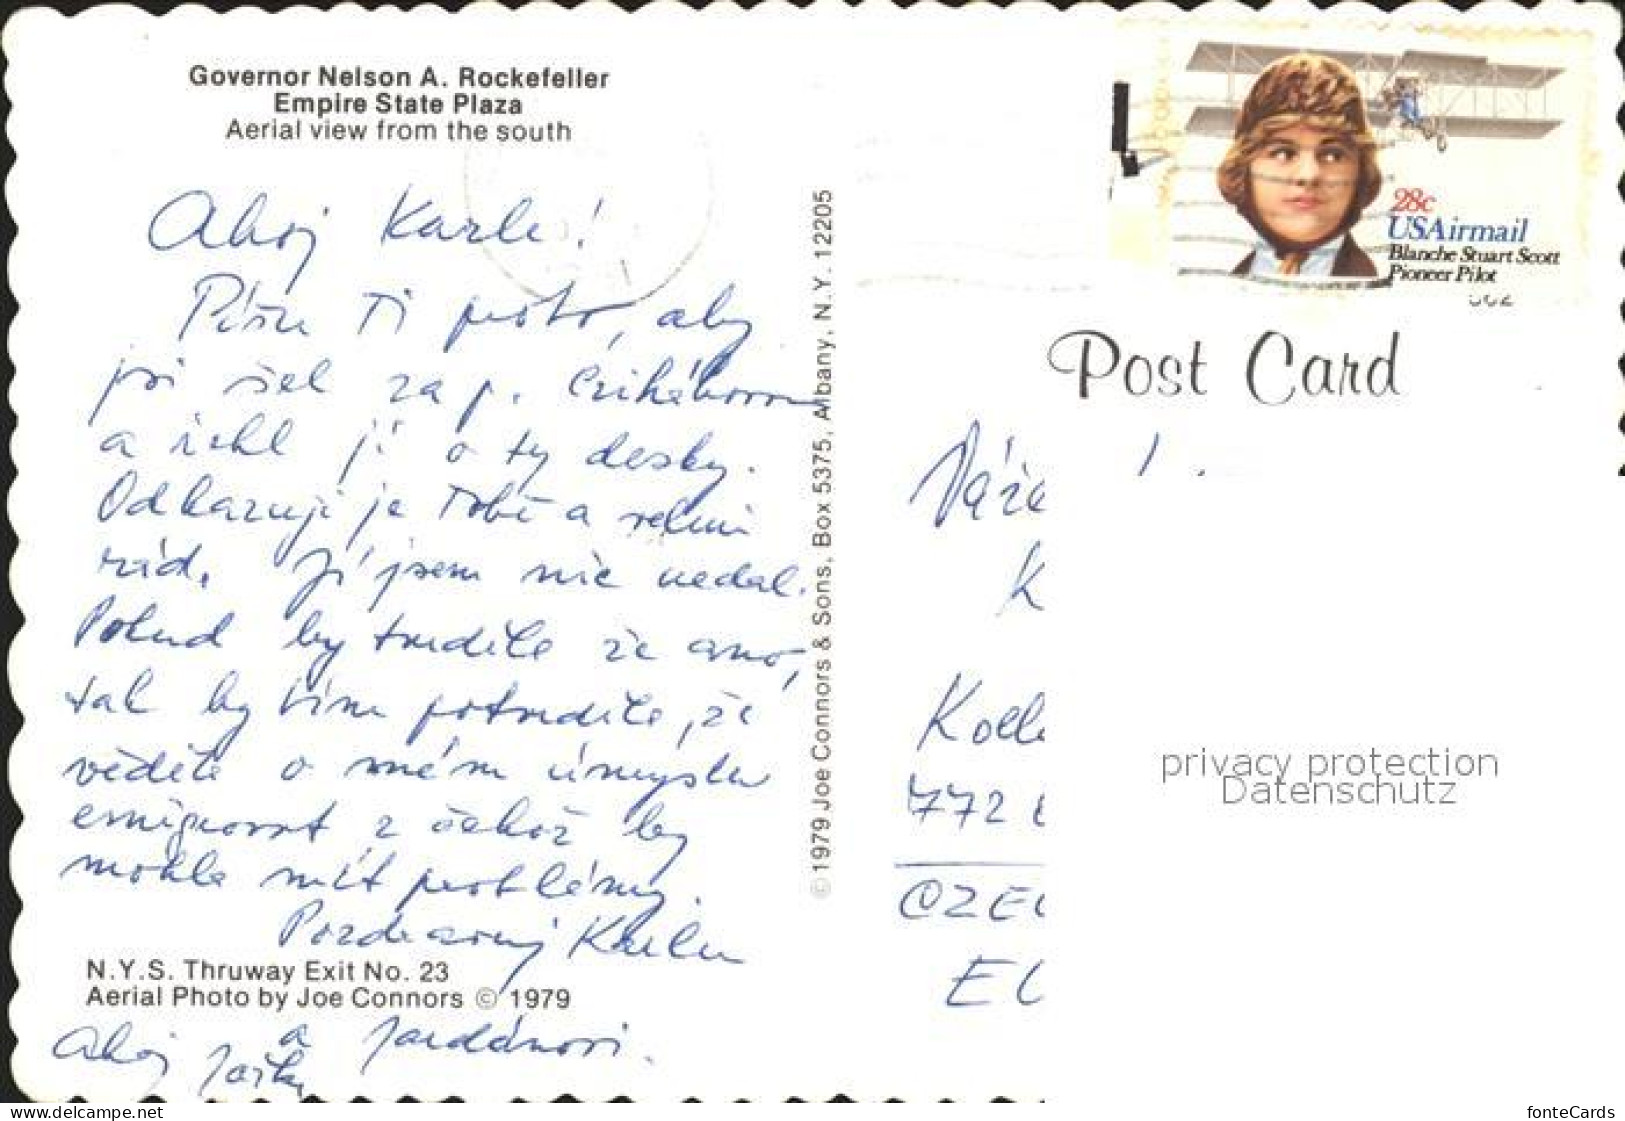 Governor Nelson A. Rockefeller
Empire State Plaza
Aerial view from the south
Ahoj Karle!
Píšu Ti proto, aby
jsi šel za p.
a řekl jí o ty desky.
Odkazuji je Tobě a velmi
rád. Jí jsem nic nedal.
Pokud by tvrdila že ano,
tak by tím potvrdila, že
věděla o mém úmyslu
emigrovat z čehož by
mohla mít problémy.
Pozdravuj Karlu
N.Y.S. Thruway Exit No. 23
Aerial Photo by Joe Connors © 1979
a Jardánovi.
Ahoj
© 1979 Joe Connors & Sons, Box 5375, Albany, N.Y. 12205
28c
USAirmail
Blanche Stuart Scott
Pioneer Pilot
Post Card
Váže
K
Koll
772
CZE
privacy protection
Datenschutz
www.delcampe.net
fonteCards